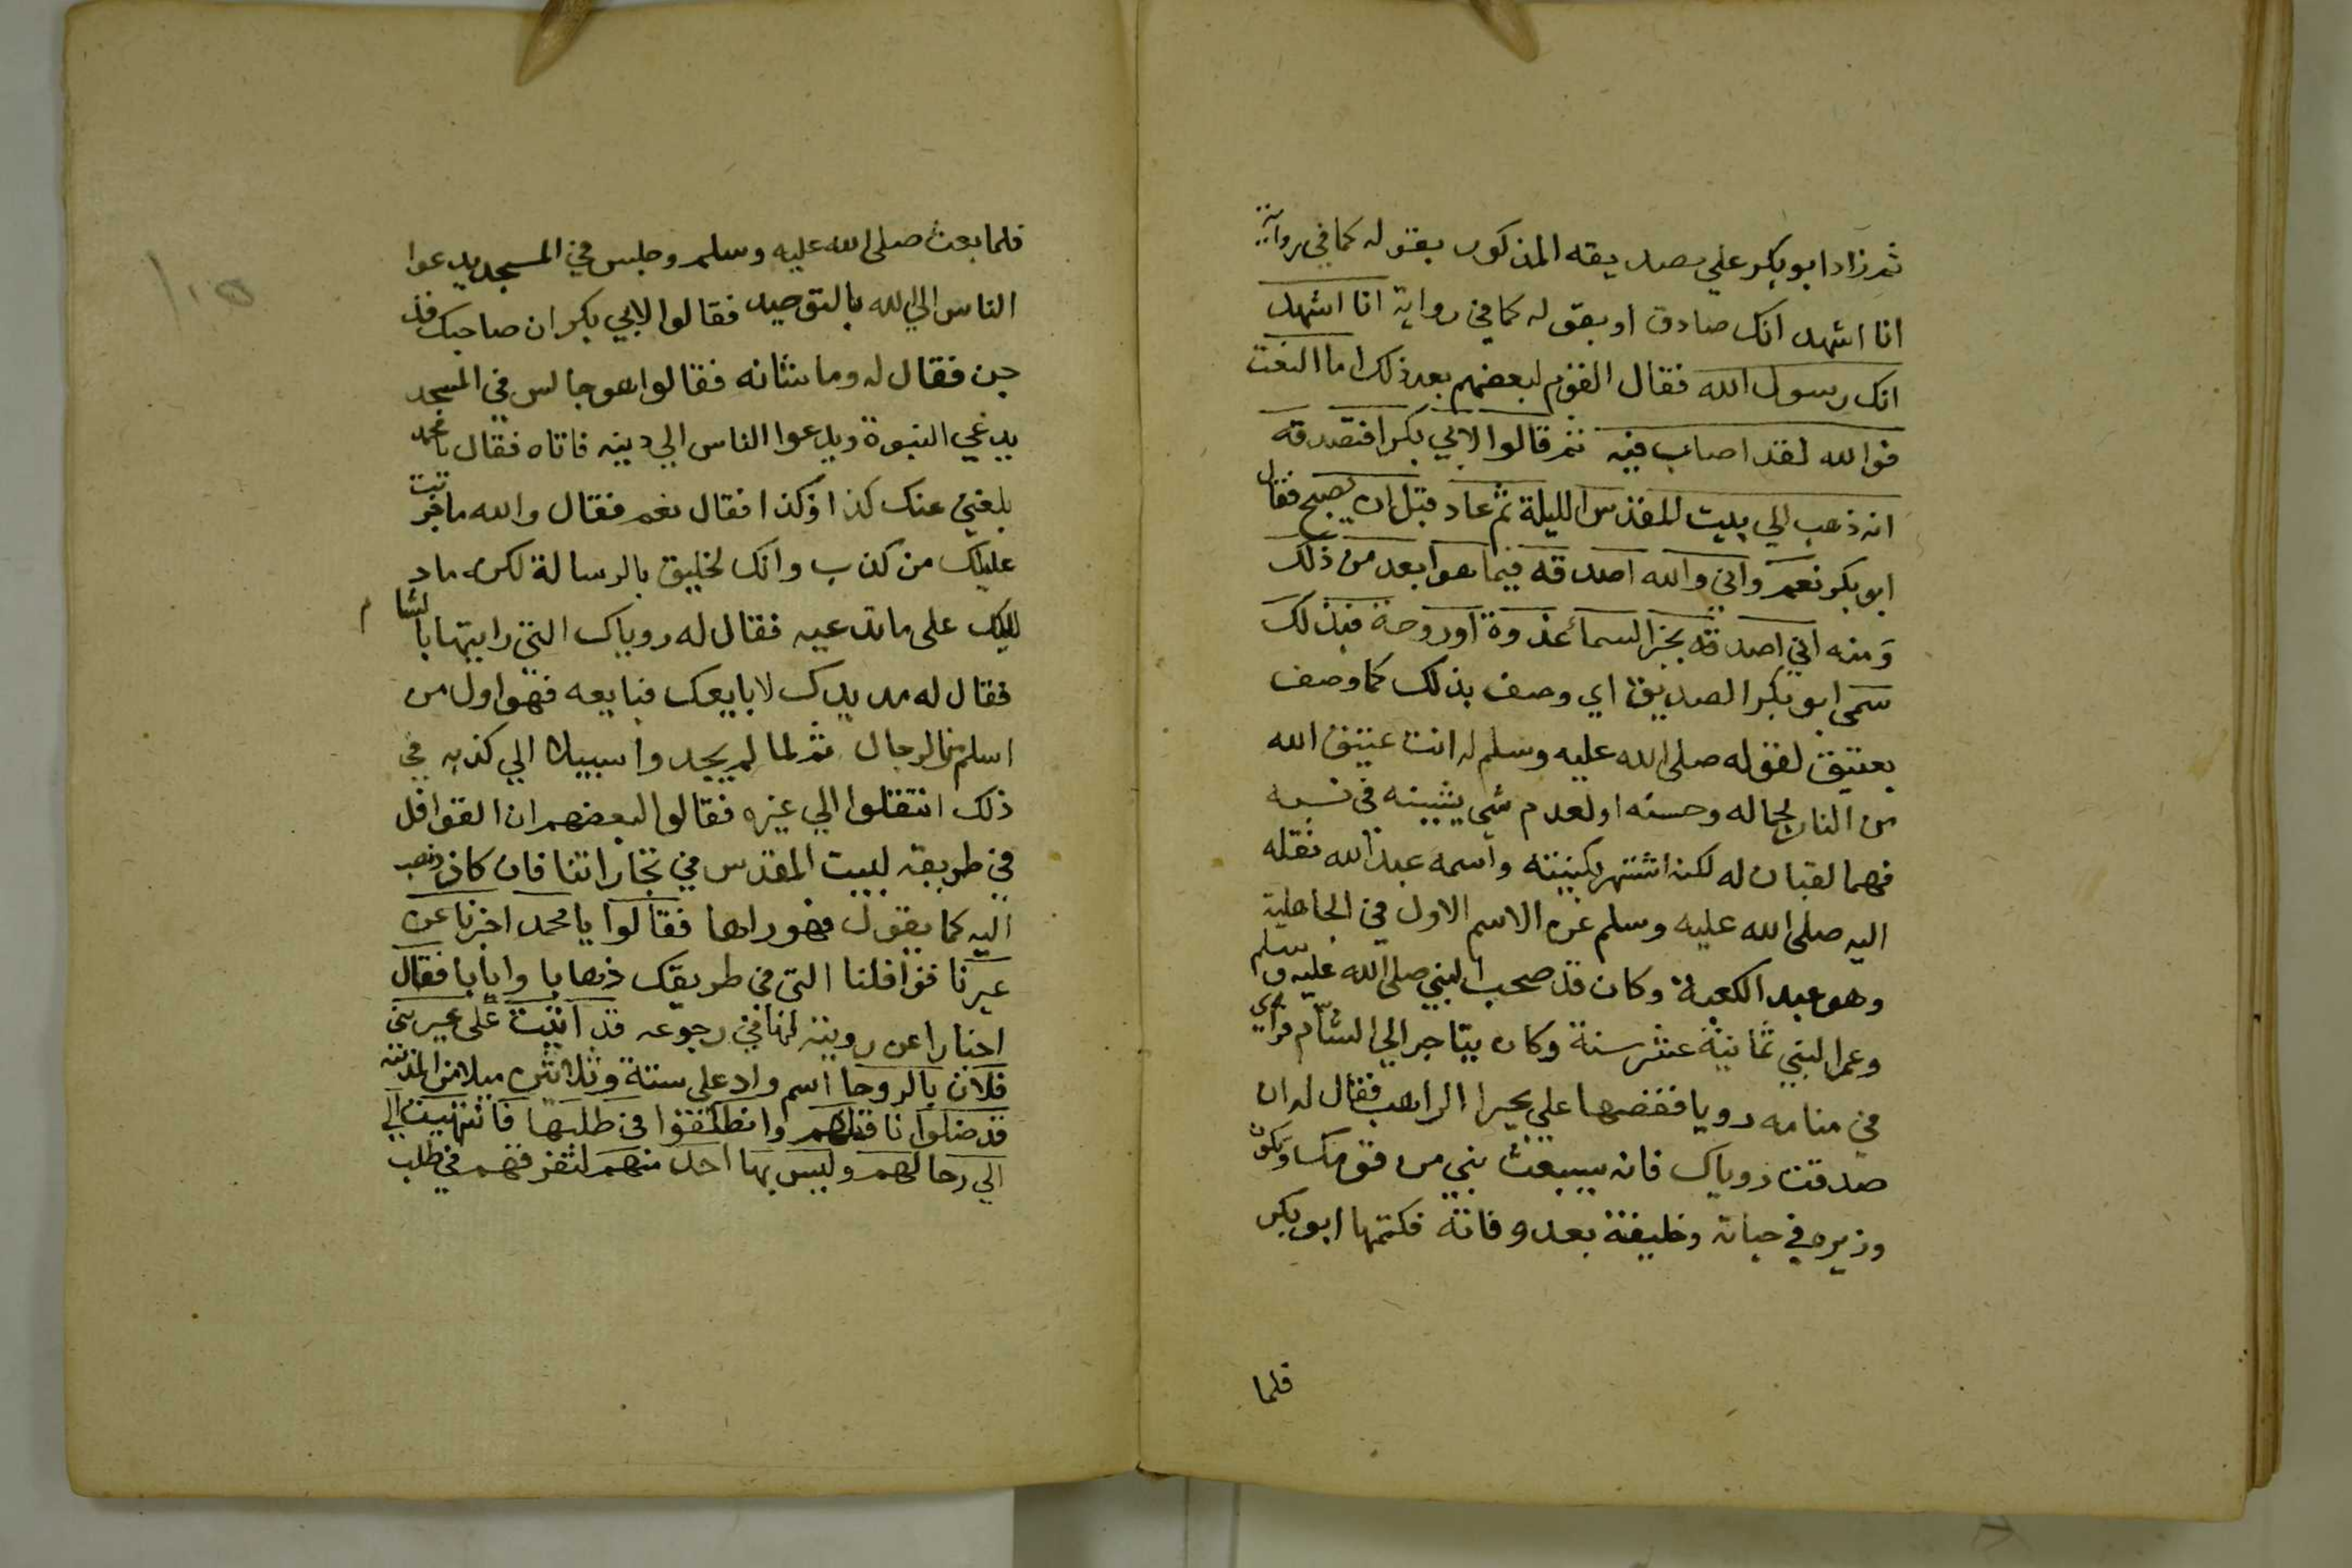 ثم زاد ابو بكر علي تصديقه المذكور بقوله كما في رواية
انا اشهد انك صادق او بقوله كما في رواية انا اشهد
انك رسول الله فقال القوم لبعضهم بعد ذلك اما النعت
فوالله لقد اصاب فيه ثم قالوا لابي بكر افتصدقه
انه ذهب الي بيت المقدس الليلة ثم عاد قبل ان يصبح فقال
ابو بكر نعم واني والله اصدقه فيما هو ابعد من ذلك
ومنه اني اصدقه بخبر السماء غدوة او روحة فبذلك
سمي ابو بكر الصديق اي وصف بذلك كما وصف
بعتيق لقوله صلى الله عليه وسلم له انت عتيق الله
من النار لجماله وحسنه او لعدم شي يشينه في نسبه
فهما لقبان له لكنه اشتهر بكنيته واسمه عبد الله نقله
اليه صلى الله عليه وسلم عن الاسم الاول في الجاهلية
وهو عبد الكعبة وكان قد صحب النبي صلى الله عليه وسلم
وعمر النبي ثمانية عشر سنة وكان يتاجر الي الشام فراي
في منامه رويا فقصها علي بحيرا الراهب فقال له ان
صدقت روياك فانه سيبعث نبي من قومك وتكون
وزيره في حياته وخليفته بعد وفاته فكتمها ابو بكر
فلما
فلما بعث صلى الله عليه وسلم وجلس في المسجد يدعوا
الناس الي الله بالتوحيد فقالوا لابي بكر ان صاحبك قد
جن فقال له وما شانه فقالوا هو جالس في المسجد
يدعي النبوة ويدعوا الناس الي دينه فاتاه فقال يا محمد
بلغني عنك كذا وكذا فقال نعم فقال والله ما جربت
عليك من كذب وانك لخليق بالرسالة لكن ما د
ليلك على ما تدعيه فقال له روياك التي رايتها بالشام
فقال له مد يدك لابايعك فبايعه فهو اول من
اسلم من الرجال ثم لما لم يجدوا سبيلا الي كذبه في
ذلك انتقلوا الي غيره فقالوا لبعضهم ان القوافل
في طريقه لبيت المقدس في تجاراتنا فان كان ذهب
اليه كما يقول فهو راها فقالوا يا محمد اخبرنا عن
عيرنا قوافلنا التي في طريقك ذهابا وايابا فقال
اخبارا عن رويته لها في رجوعه قد اتيت على عير بني
فلان بالروحا اسم واد على ستة وثلاثين ميلا من المدينة
قد ضلوا ناقة لهم وانطلقوا في طلبها فانتهيت الي
الي رحالهم وليس بها احد منهم لتفرقهم في طلب